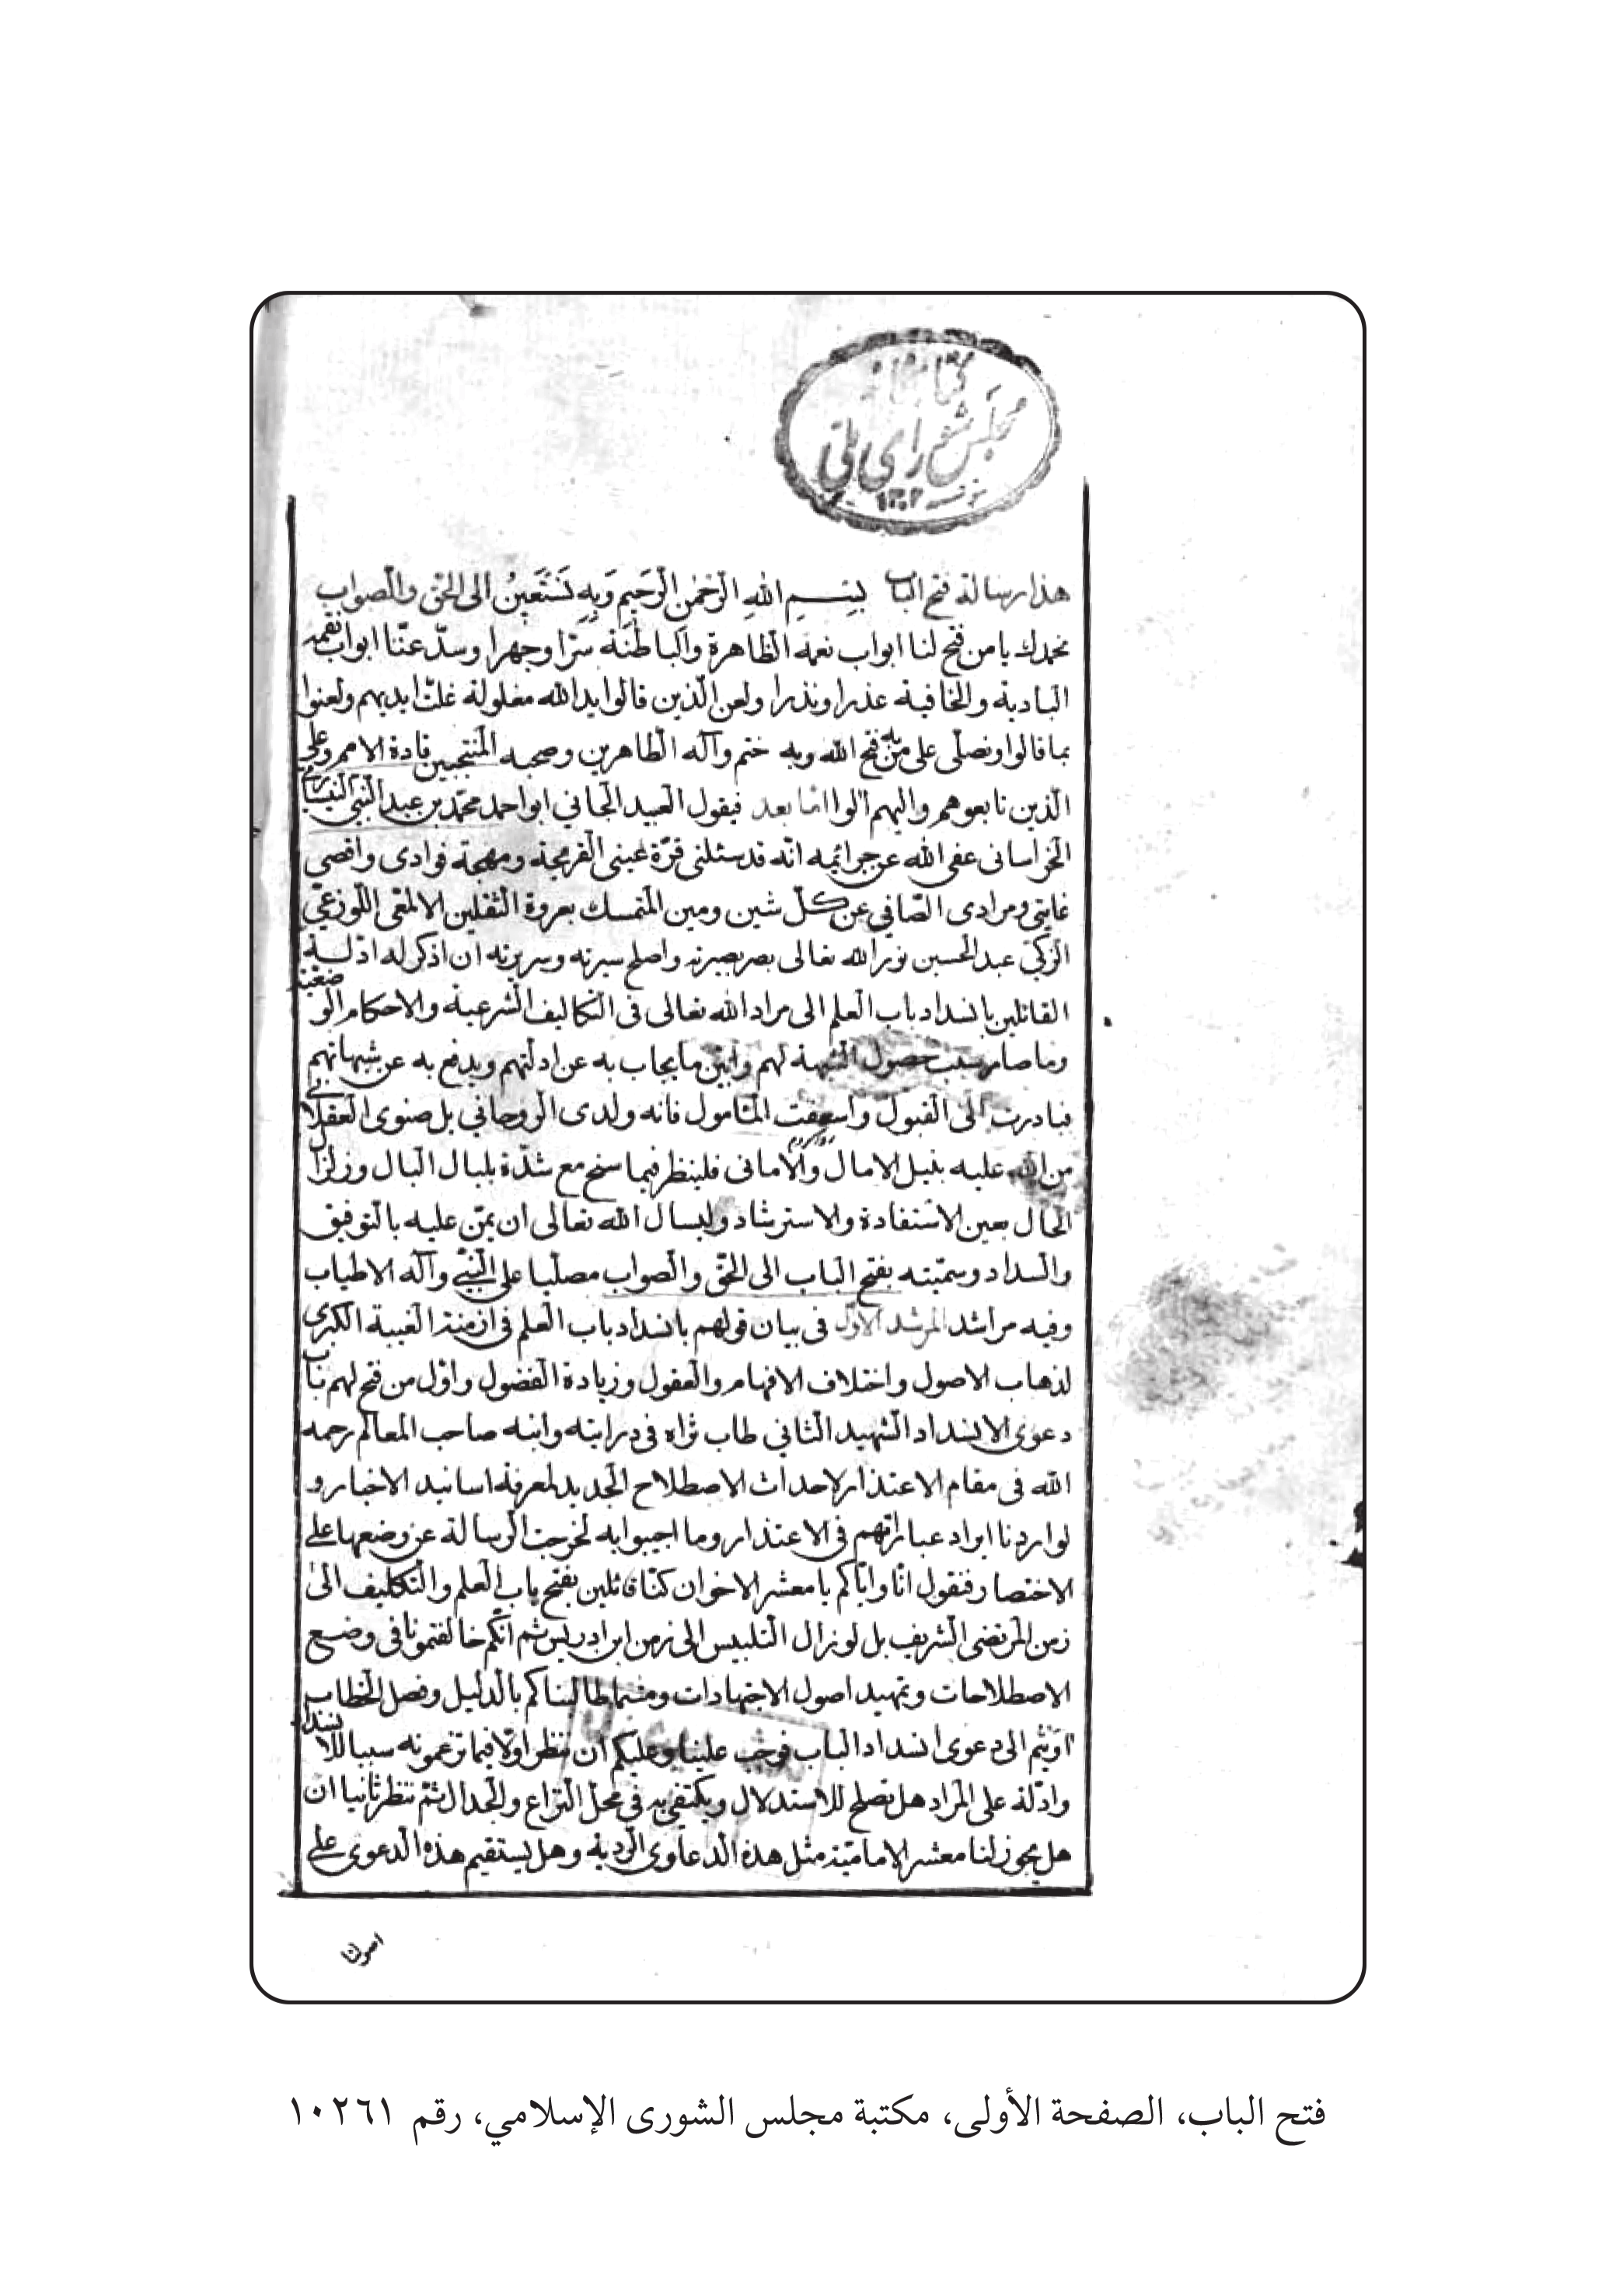 كتابخانه
مجلس شورای ملی
١٣٠٢
هذا رسالة فتح الباب بسم الله الرحمن الرحيم وبه نستعين الى الحق والصواب
نحمدك يا من فتح لنا ابواب نعمه الظاهرة والباطنة سرّا وجهرا وسدّ عنّا ابواب نقمه
البادية والخافية عذرا ونذرا ولعن الذين قالوا يد الله مغلولة غلّت ايديهم ولعنوا
بما قالوا ونصلّى على من به فتح الله وبه ختم وآله الطاهرين وصحبه المنتجبين قادة الامم وعلى
الذين تابعوهم واليهم الوا امّا بعد فيقول العبد الجاني ابو احمد محمّد بن عبد النبي النيسابوري
الخراسانى عفى الله عن جرائمه انّه قد سئلنى قرّة عينى القريحة ومهجة فوادى واقصى
غايتي ومرادى الصّافي عن كلّ شين ومين المتمسك بعروة الثقلين الالمعى اللوزعيّ
الزكيّ عبد الحسين نور الله تعالى بصر بصيرته واصلح سيرته وسريرته ان اذكر له ادّلة
القائلين بانسداد باب العلم الى مراد الله تعالى فى التكاليف الشرعية والاحكام الوضعية
وما صار سبب حصول الشبهة لهم وابيّن ما يجاب به عن ادلّتهم ويدفع به عن شبهاتهم
فبادرت الى القبول واسعفت المأمول فانه ولدى الروحاني بل صنوى العقلانى
من الله عليه بنيل الامال والامانى فلينظر فيما سنح مع شدّة بلبال البال وزلزال
الحال بعين الاستفادة والاسترشاد وليسال الله تعالى ان يمنّ عليه بالتوفيق
والسداد وسمّيته بفتح الباب الى الحقّ والصواب مصلّيا على النبيّ وآله الاطياب
وفيه مراشد المرشد الاوّل فى بيان قولهم بانسداد باب العلم في ازمنة الغيبة الكبرى
لذهاب الاصول واختلاف الافهام والعقول وزيادة الفضول واوّل من فتح لهم باب
دعوى الانسداد الشهيد الثاني طاب ثراه فى درايته وابنه صاحب المعالم رحمه
الله فى مقام الاعتذار لاحداث الاصطلاح الجديد لمعرفة اسانيد الاخبار و
لو اردنا ايراد عباراتهم فى الاعتذار وما اجيبوا به لخرجت الرسالة عن وضعها على
الاختصار فنقول انّا وايّاكم يا معشر الاخوان كنّا قائلين بفتح باب العلم والتكليف الى
زمن المرتضى الشريف بل لو زال التلبيس الى زمن ابن ادريس ثم انّكم خالفتمونا فى وضع
الاصطلاحات وتمهيد اصول الاجتهادات ومتىما طالبناكم بالدليل وفصل الخطاب
اويتم الى دعوى انسداد الباب فوجب علينا وعليكم ان ننظر اولا فيما تزعمونه سببا للانسداد
وادّلة على المراد هل تصلح للاستدلال ويكتفى به في محلّ النزاع والجدال ثمّ ننظر ثانيا ان
هل يجوز لنا معشر الاماميّة مثل هذه الدعاوى الرديّة وهل يستقيم هذه الدعوى على
اصولنا
فتح الباب، الصفحة الأولى، مكتبة مجلس الشورى الإسلامي، رقم ١٠٢٦١